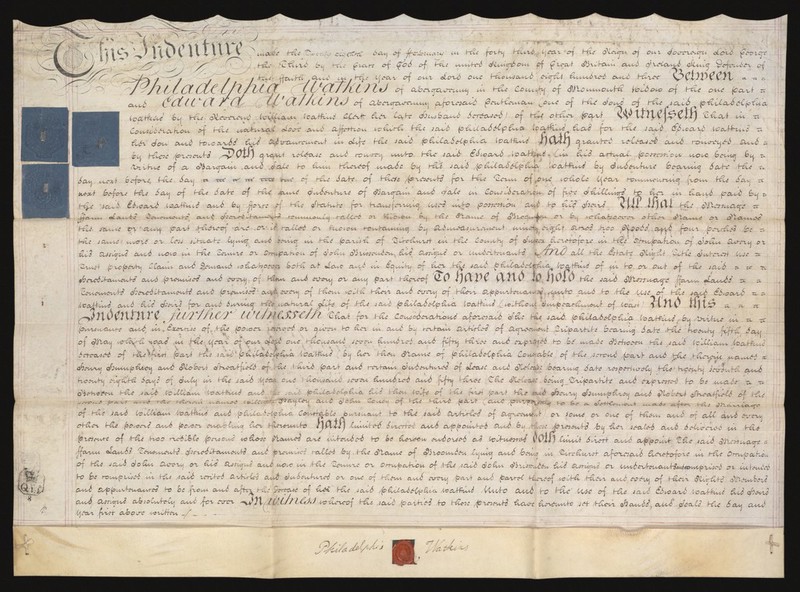 This Indenture made the day of February in the forty third year of the Reign of our Sovereign Lord George
the Third by the Grace of God of the united Kingdom of Great Britain and Ireland King Defender of
the faith and in the year of our Lord one thousand eight hundred and three Between
Philadelphia Watkins of abergavenny in the County of Monmouth Widow of the one part
and Edward Watkins of abergavenny aforesaid Gentleman one of the Sons of the said philadelphia
Watkins by the Reverend William Watkins Clerk her late Husband deceased of the other part Witnesseth That in
Consideration of the natural Love and affection which the said philadelphia Watkins hath for the said Edward Watkins
her Son and towards his advancement in life the said philadelphia Watkins Hath granted released and conveyed and
by these presents Doth grant release and convey unto the said Edward Watkins (in his actual possession now being by
virtue of a Bargain and Sale to him thereof made by the said philadelphia Watkins by Indenture bearing date the
day next before the day of the date of these presents for the Term of one whole year commencing from the day
next before the day of the date of the same Indenture of Bargain and Sale in Consideration of five shillings to her in hand paid by
the said Edward Watkins and by force of the Statute for transferring uses into possession and to his Heirs All that the Messuage
ffarm Lands Tenements and Hereditaments commonly called or known by the Name of or by whatsoever other Name or Names
the same or any part thereof are or is called or known containing by admeasurement eight acres two Roods and four perches be
the same more or less situate lying and being in the parish of Ticehurst in the County of Sussex heretofore in the Occupation of John Avery or
his assigns and now in the Tenure or Occupation of John his assigns or undertenants And all the Estate Right Title Interest use
Trust property Claim and Demand whatsoever both at Law and in Equity of her the said philadelphia Watkins of in to or out of the said
Hereditaments and premises and every of them and every or any part thereof To have and to hold the said Messuage ffarm Lands
Tenements Hereditaments and premises and every of them with their and every of their appurtenances unto and to the use of the said Edward
Watkins and his Heirs for and during the natural Life of the said philadelphia Watkins (without Impeachment of Waste) And this
Indenture further witnesseth That for the Considerations aforesaid She the said philadelphia Watkins by virtue in
pursuance and in Exercise of the power reserved or given to her in and by certain articles of agreement Tripartite bearing date the twenty fifth day
of May which was in the year of our Lord one thousand seven hundred and fifty three and expressed to be made Between the said William Watkins
deceased of the first part the said philadelphia Watkins by her then Name of philadelphia Constable of the second part and the therein named
Henry Humphrey and Robert Streatfield of the third part and certain Indentures of Lease and Release bearing date respectively the twenty seventh and
twenty eighth days of July in the said year one thousand seven hundred and fifty three The Release being Tripartite and expressed to be made
Between the said William Watkins and the said philadelphia his then wife of the first part the said Henry Humphrey and Robert Streatfield of the
second part and the therein named and John of the third part and purporting to be a Settlement made after the Marriage
of the said William Watkins and philadelphia Constable pursuant to the said articles of agreement or some or one of them and of all and every
other the powers and power enabling her thereunto Hath limited directed and appointed and by these presents by her sealed and delivered in the
presence of the two credible persons whose Names are intended to be hereon endorsed as witnesses Doth limit direct and appoint The said Messuage
ffarm Lands Tenements Hereditaments and premises called by the Name of lying and being in Ticehurst aforesaid heretofore in the Occupation
of the said John Avery or his assigns and now in the Tenure or Occupation of the said John his assigns or undertenants comprised or intended
to be comprised in the said recited articles and Indentures or one of them and every part and parcel thereof with their and every of their Rights Members
and appurtenances to be from and after the Decease of her the said philadelphia Watkins Unto and to the Use of the said Edward Watkins his Heirs
and assigns absolutely and for ever In witness whereof the said parties to these presents have hereunto set their Hands and Seals the day and
year first above written
Philadelphia Watkins